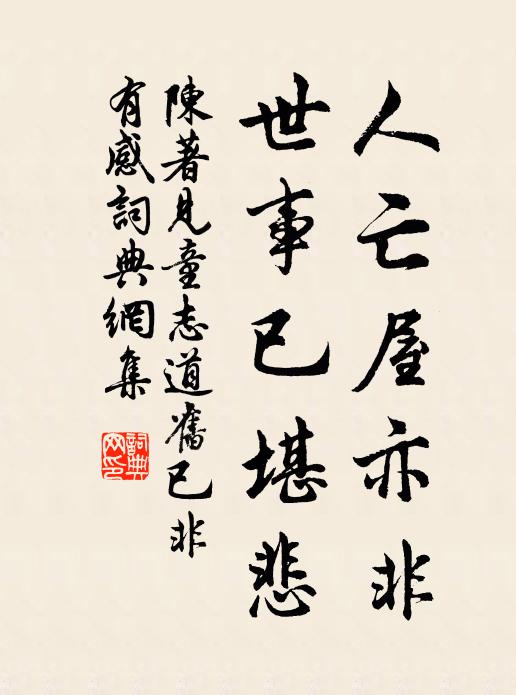 人亡屋亦非
世事已堪悲
陳著見童志道舊已非
有感詞典網集
詞典
網印